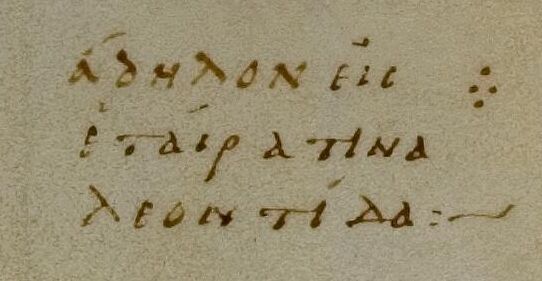 ἄδηλον εἰς ⁘
ἑταίρα τινα
λεοντίδα :~